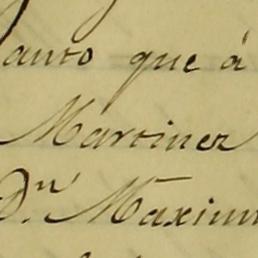 auto que á
Martinez
D.n Maxim